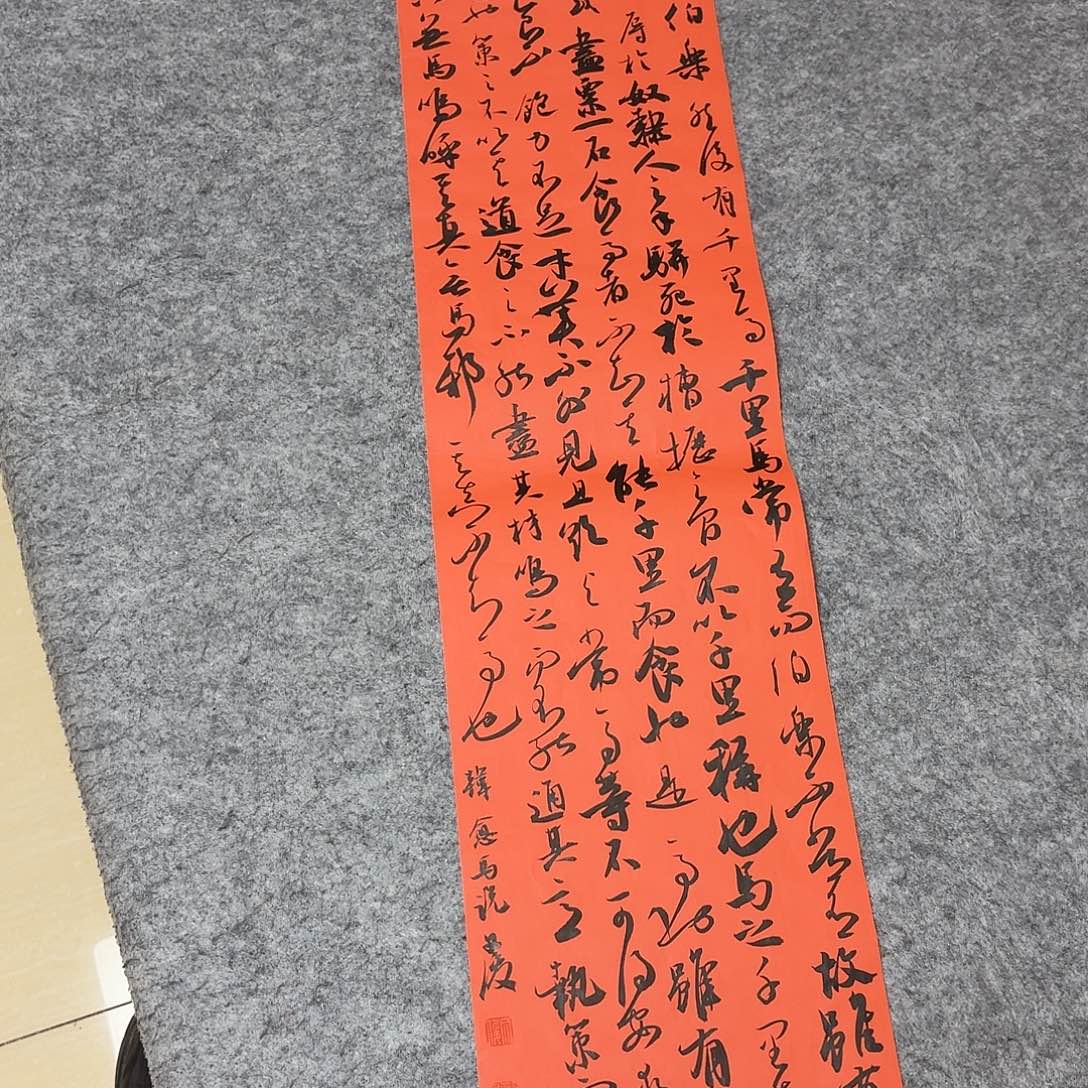 伯樂然後有千里馬千里馬常有而伯樂不常有故雖
辱於奴隸人之手駢死於槽櫪之間不以千里稱也馬之千里
盡粟一石食馬者不知其能千里而食也是馬也雖有
食不飽力不足才美不外見且欲與常馬等不可得安求
也策之不以其道食之不能盡其材鳴之而不能通其意執策而
無馬嗚呼其真無馬邪其真不知馬也
韓愈馬說